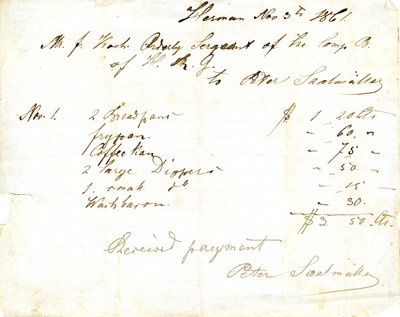 Herman Nov 3th 1861.
Mr. f Koch Orderly Sergeant of the Comp B.
of H. R. G.
to Peter Saalmüller
Nov. 1. 2 Breadpans $ 1 20 Cts
frypan. " 60. "
1 Coffee Kan " 75 "
2 large Dippers " 50 "
1. small do " 15 "
Washbason. " 30.
$ 3 50 Cts.
Received payment
Peter Saalmüller